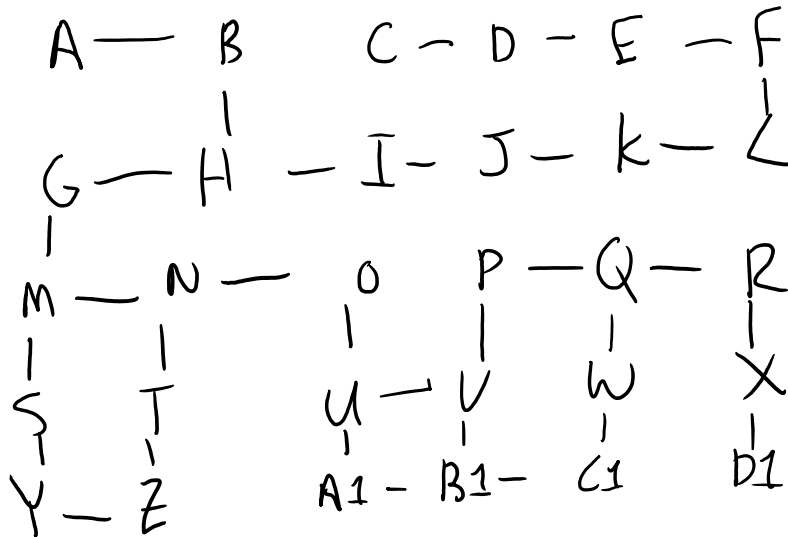 A B C D E F
G H I J K L
M N O P Q R
S T U V W X
Y Z A1 B1 C1 D1